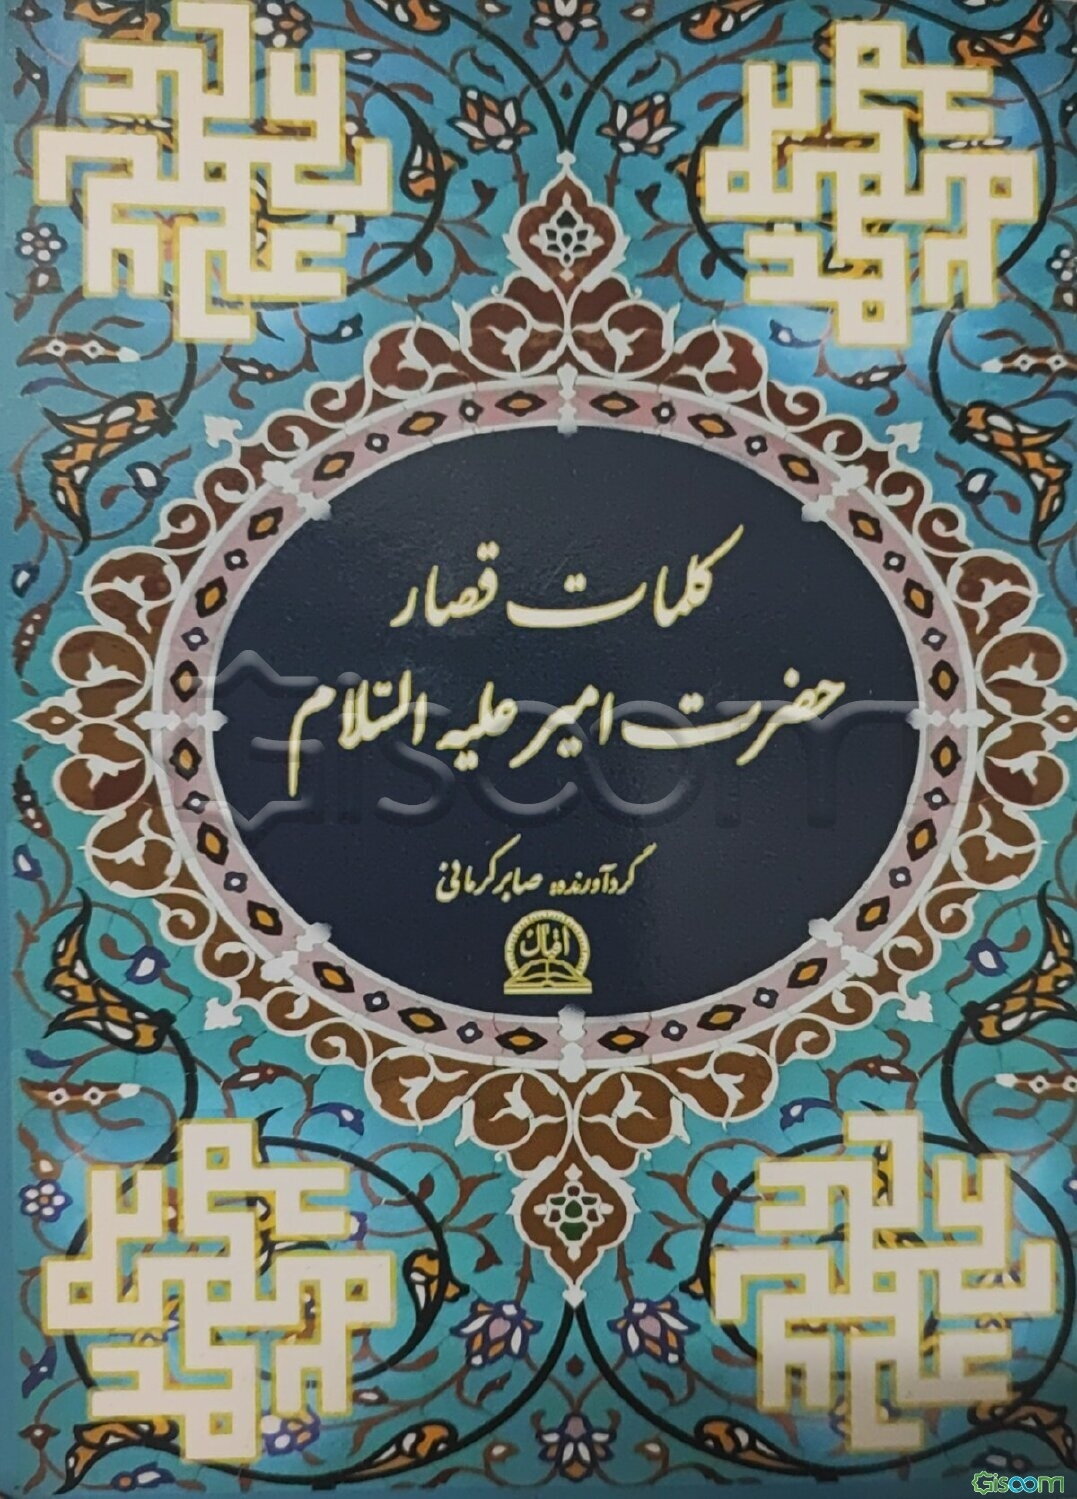 کلمات قصار
حضرت امیر علیه السّلام
گردآورنده: صابر کرمانی
اقبال
Giscom
Giscom